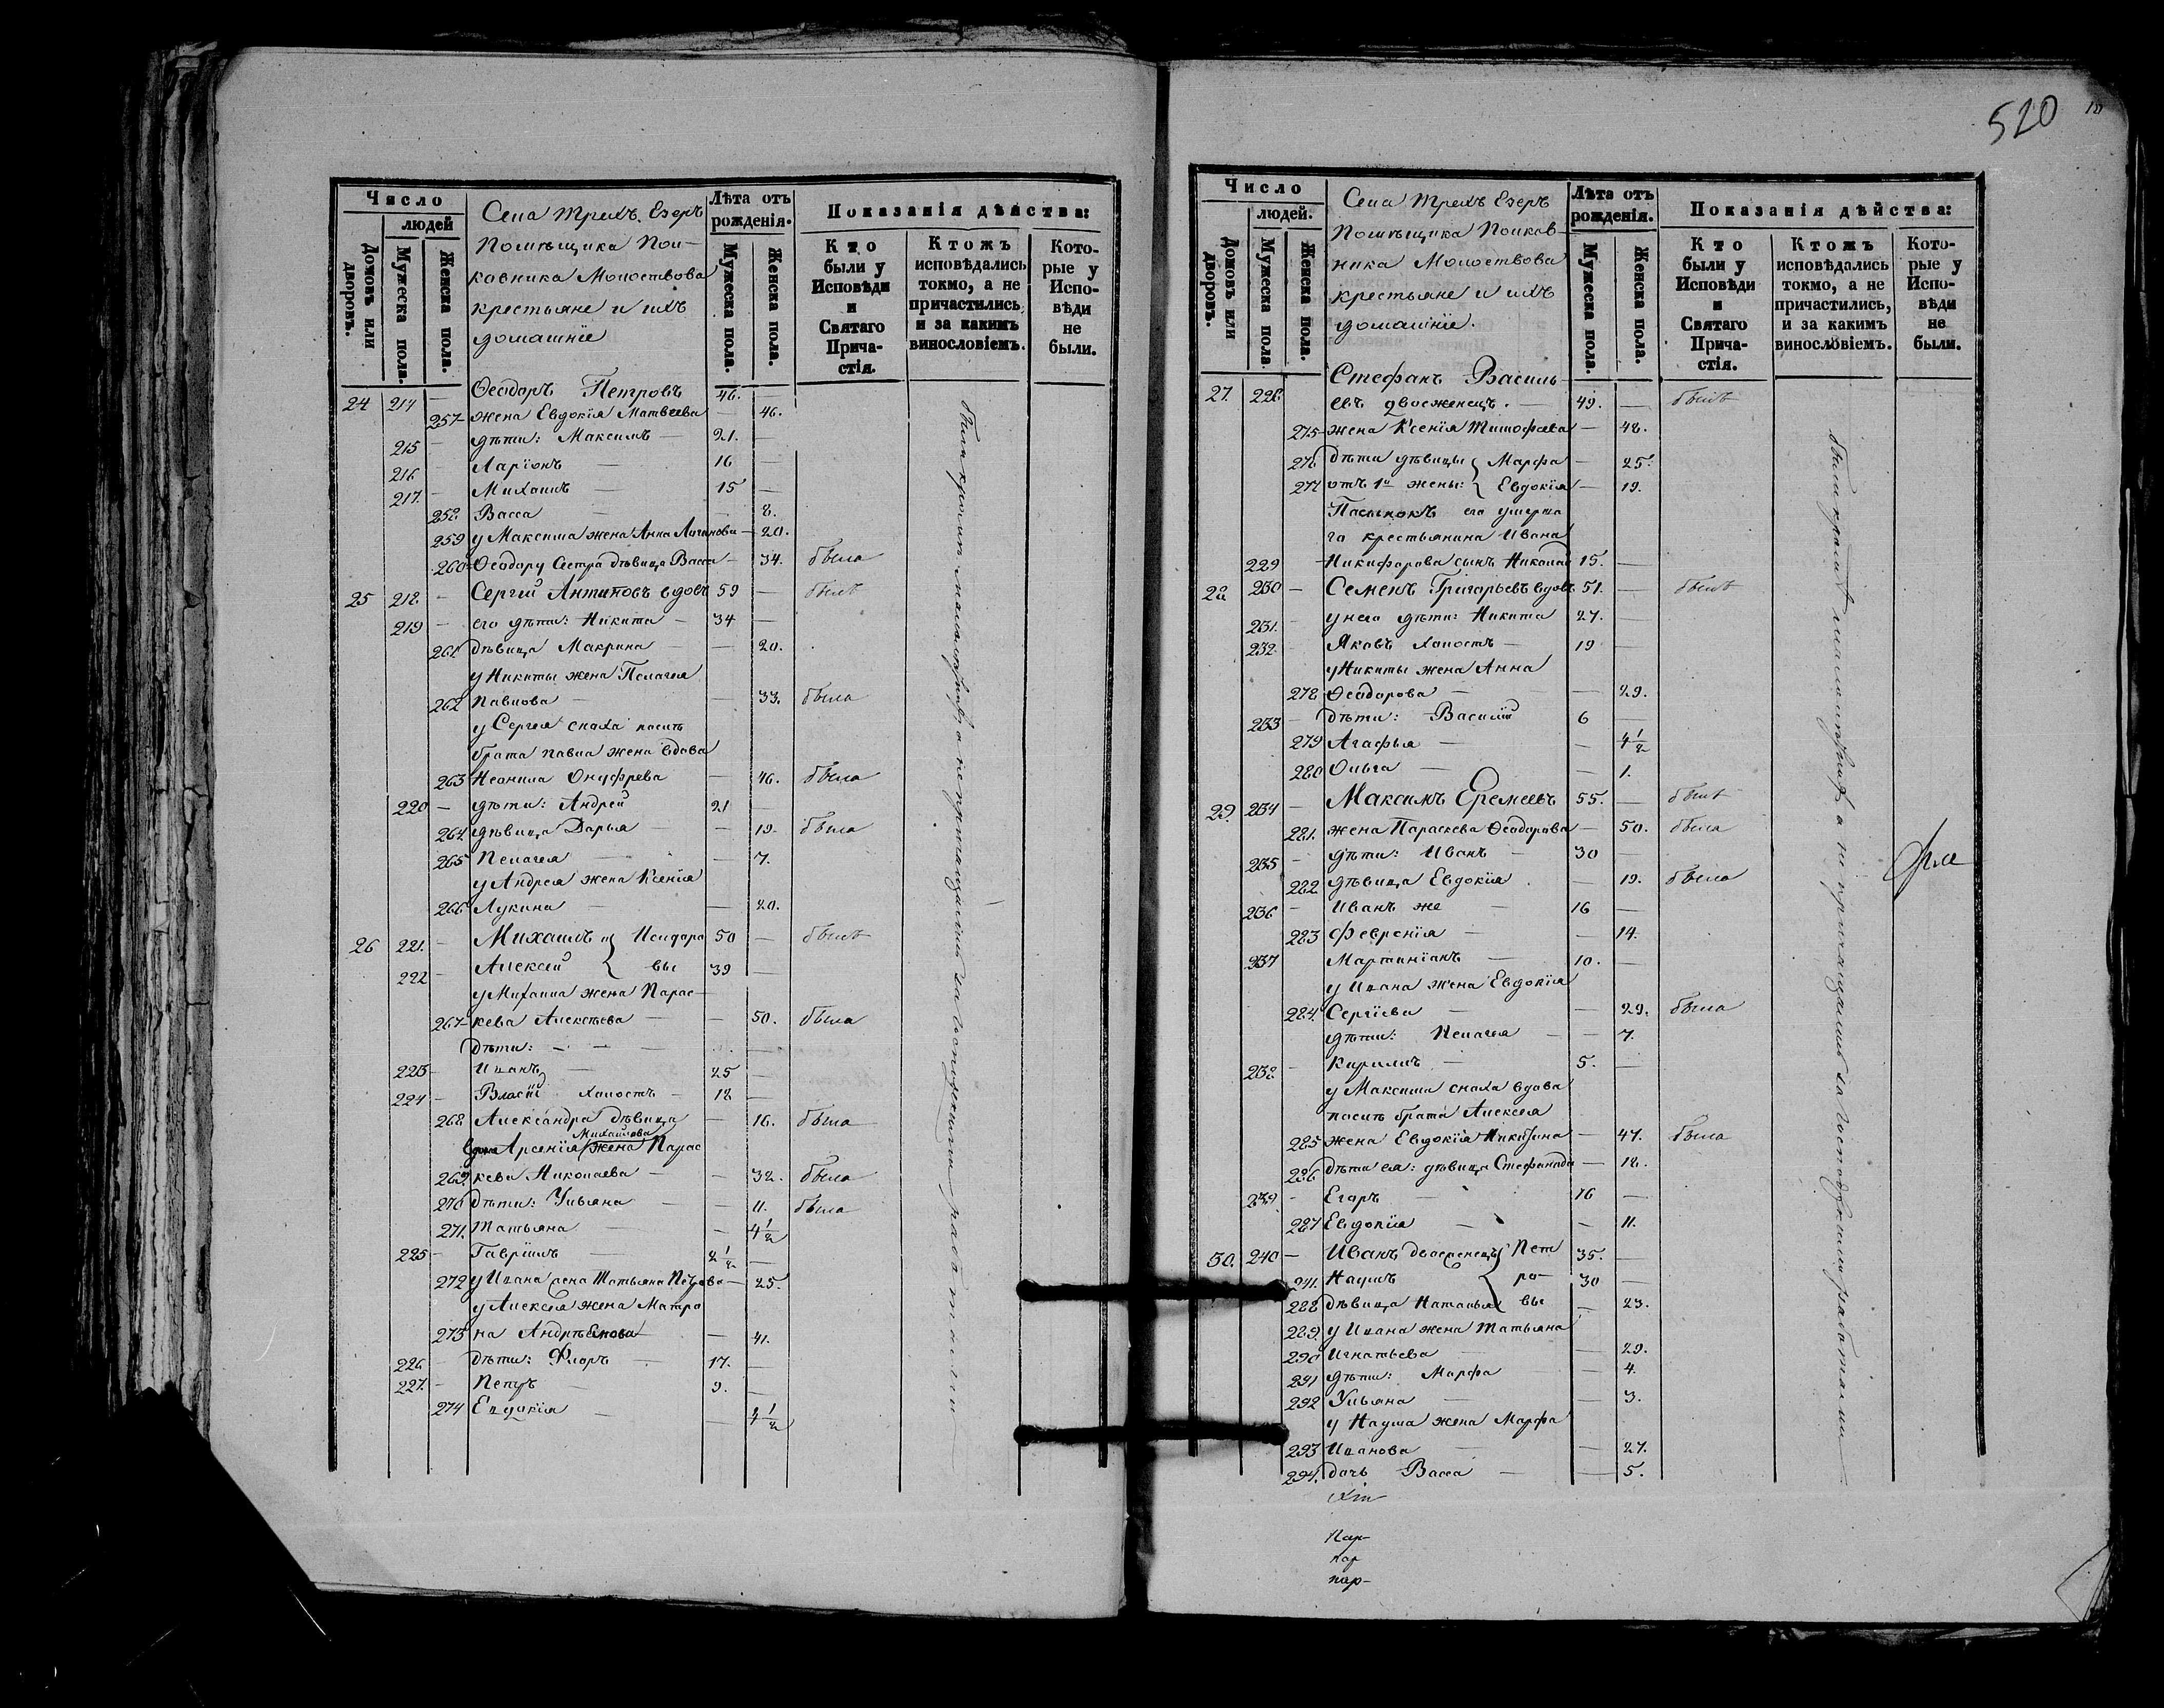 520
Число
людей
Домовъ или дворовъ.
Мужеска пола.
Женска пола.
Села Трехъ Езеръ
Помѣщика Пол-
ковника Молоствова
крестьяне и ихъ
домашніе
Лѣта отъ рожденія.
Мужеска пола.
Женска пола.
Показанія дѣйства:
Кто были у Исповѣди и Святаго Прича- стія.
Ктожъ исповѣдались токмо, а не причастились, и за какимъ винословіемъ.
Кото- рые у Испо- вѣди не были.
24 214 — Ѳеодоръ Петровъ 46. —
257 жена Евдокія Матвеева — 46.
215 — дѣти: Максимъ — 21. —
216 — Ларіонъ — 16 —
217. — Михаилъ — 15 —
258 Васса — — 8.
259 у Максима жена Анна — 20.
260 Ѳеодору сестра дѣвица Васса — 34. была
25 218. — Сергей Антиповъ вдовъ 59 — былъ
219 — его дѣти: Никита — 34 —
261 дѣвица Макрина — — 20.
у Никиты жена Пелагея
262 Павлова — — 33. была
у Сергея сноха
брата Павла жена вдова
263 Неонила Онуфрева — 46. была
220 — дѣти: Андрей 21 —
264 дѣвица Дарья — — 19. была
265 Пелагея — — 7.
у Андрея жена Ксенія
266 Лукина — — 20.
26 221. — Михаилъ } Исидоро 50 — былъ
222 — Алексей } вы 39 —
у Михаила жена Парас-
267 кева Алексѣева — — 50. была
дѣти: — — —
223 — Иванъ — 25 —
224 — Власій холостъ — 18 —
268 Александра дѣвица — 16. была
Михайлова
вдова Арсенія жена Парас
269. кева Николаева — — 32. была
270 дѣти: Ульяна — — 11. была
271. Татьяна — — 4 1/2
225 — Гавріилъ — 2 1/2 —
272 у Ивана жена Татьяна Петрова — 25.
у Алексея жена Матро
273 на Андрѣянова — 41.
226 — дѣти: Флоръ — 17. —
227. — Петръ — 9. —
274 Евдокія — — 4 1/2
были кромѣ малолѣтнихъ, а не причащались за Господскими работами
Число
людей.
Домовъ или дворовъ.
Мужеска пола
Женска пола.
Села Трехъ Езеръ
Помѣщика Полков-
ника Молоствова
крестьяне и ихъ
домашніе.
Лѣта отъ рожденія.
Мужеска пола.
Женска пола.
Показанія дѣйства:
Кто были у Исповѣди и Святаго Прича- стія.
Ктожъ исповѣдались токмо, а не причастились, и за какимъ винословіемъ.
Кото- рые у Испо- вѣди не были.
Стефанъ Василь-
27. 228 евъ двоеженецъ. — 49. — былъ
275 жена Ксенія Тимофеева — 48.
276 дѣти дѣвицы { Марфа — 25.
277 отъ 1й жены: { Евдокія — 19.
Пасынокъ его умерша
го крестьянина Ивана
229 Никифорова сынъ Николай 15. —
28 230 — Семенъ Григорьевъ вдовъ 51. — былъ
231. — у него дѣти: Никита 27. —
232 — Яковъ холостъ — 19 —
у Никиты жена Анна
278 Ѳеодорова — — 29.
233 — дѣти: Василій 6 —
279 Агафья — — 4 1/2
280 Ольга — — 1.
29. 234 — Максимъ Еремеевъ 55. — былъ
281. жена Параскева Ѳеодорова — 50. была
235 — дѣти: Иванъ — 30 —
282 дѣвица Евдокія — 19. была
236 — Иванъ же — 16 —
283 Февронія — — 14.
237 Мартиніанъ — 10. —
у Ивана жена Евдокія
284. Сергіева — — 29. была
дѣти: Пелагея — — 7.
238. — Кирилъ — 5. —
у Максима сноха вдова
брата Алексея
285 жена Евдокія Никитина — 47. была
286 дѣти ея: дѣвица Стефанида — 18.
239. — Егоръ — 16 —
287 Евдокія — — 11.
30. 240 — Иванъ } Пет 35. —
241. Наумъ } ро- 30 —
288 дѣвица Наталья } вы — 23.
289. у Ивана жена Татьяна
290 Игнатьева — — 29.
291 дѣти: Марфа — 4.
292 Ульяна — — 3.
у Наума жена Марфа
293 Иванова — — 27.
294. дочь Васса — — 5.
были кромѣ малолѣтнихъ, а не причащались за Господскими работами
Пар-
пар
пар-